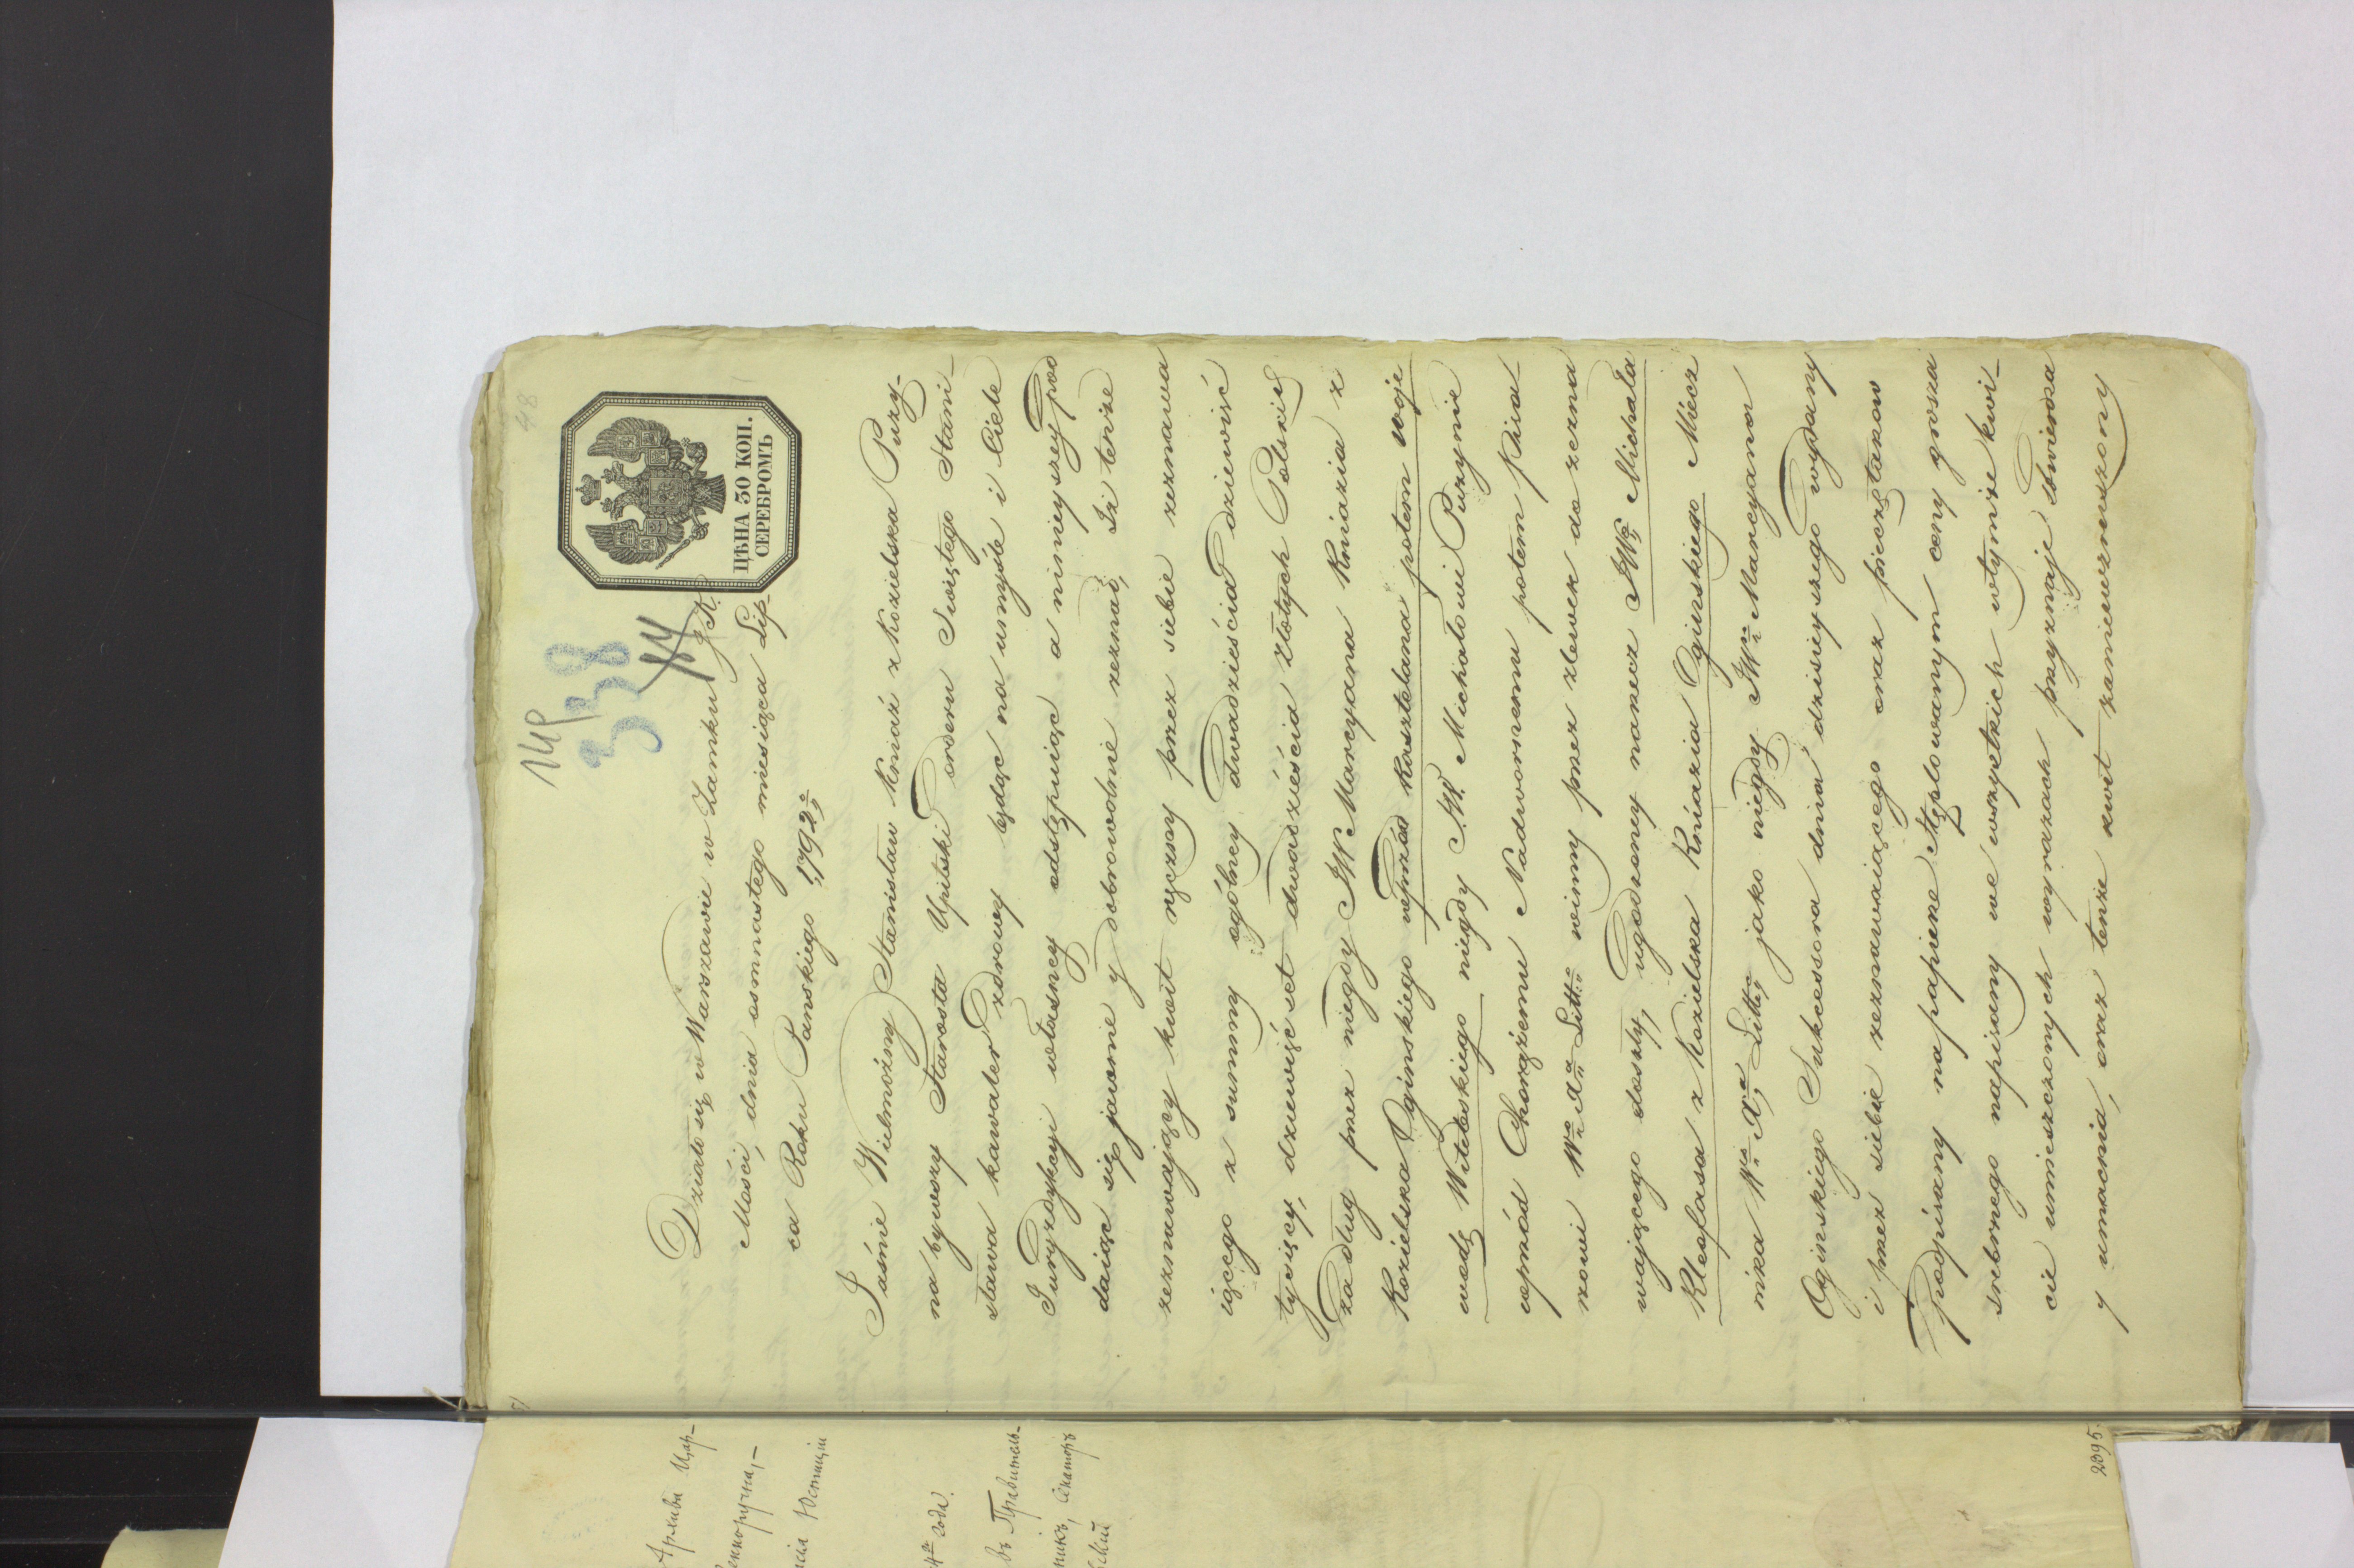 48
149
338
ЦѢНА 30 КОП.
СЕРЕБРОМЪ
Działo się w Warszawie w Zamku J. K.
Mości, dnia osmnastego miesiąca Lip-
ca Roku Panskiego 1792
Jaśnie Wielmożny Stanisław Kniaź z Kozielska Puzy-
na bywszy Starosta Upitski orderu Świętego Stani-
sława kawaler zdrowy będąc na umyśle i Ciele
Juryzdykcyi własney odstępuiąc a ninieyszey pod
daiąc się jawnie y dobrowolnie zeznał, Iż tenże
zeznawający kwit ręczny przez siebie zeznawa
iącego z summy ogólney dwadzieścia dziewięć
tysięcy, dziewięćset dwadzieścia złotych Polskich
za dług przez niegdy JW Marcyana Kniazia z
Kozielska Oginskiego wprzód Kasztelana potem woje
wodę Witebskiego niegdy J.W. Michałowi Puzynie
wprzód Chorążemu Nadwornemu potem Pisa-
rzowi W° X° Litt° winny przez zlewek do zezna
wającego doszły, ugodzoney narzecz JW° Michała
Kleofasa z Kozielska Kniazia Ogińskiego Miecz
nika W° X° Litt° jako niegdy JW° Marcyana
Oginskiego Sukcessora dnia dzisieyszego wydany
i przez siebie zeznawaiącego oraz pieczętarzow
podpisany na papierze stęplowanym ceny grosza
srebrnego napisany we wszystkich wtymże kwi-
cie umieszczonych wyrazach przyznaje stwierdza
y umacnia, oraz tenże kwit zaniewzruszony
Архива Цар-
Юстиціи
года.
въ Правитель-
Сенаторъ
2395.